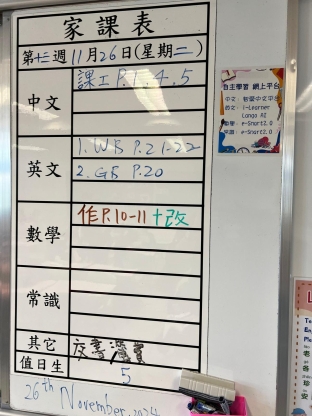 家課表
第十三週 11月26日(星期二)
中文 課工 P.1.4.5
英文 1. WB P.21-22
2. GB P.20
數學 作P.10-11+改
常識
其它
值日生 5
26th November, 2024
自主學習 網上平台
中文:智愛中文平台
英文:i-Learner
Longo AI
數學:e-Smart2.0
常識:e-Smart2.0